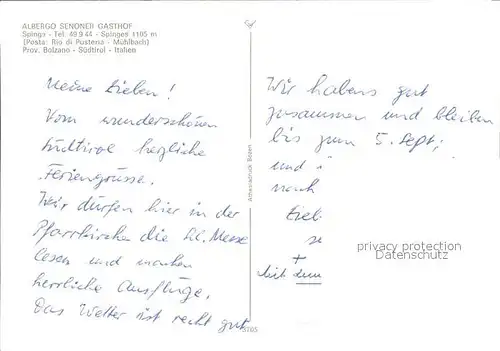 ALBERGO SENONER GASTHOF
Spinga - Tel. 49 9 44 - Spinges 1105 m
(Posta: Rio di Pusteria - Mühlbach)
Prov. Bolzano - Südtirol - Italien
Meine Lieben!
Vom wunderschönen
Südtirol herzliche
Feriengrüsse.
Wir dürfen hier in der
Pfarrkirche die hl. Messe
lesen und machen
herrliche Ausflüge.
Das Wetter ist recht gut
Athesiadruck Bozen
Wir habens gut
zusammen und bleiben
bis zum 5. Sept;
und
nach
privacy protection
Datenschutz